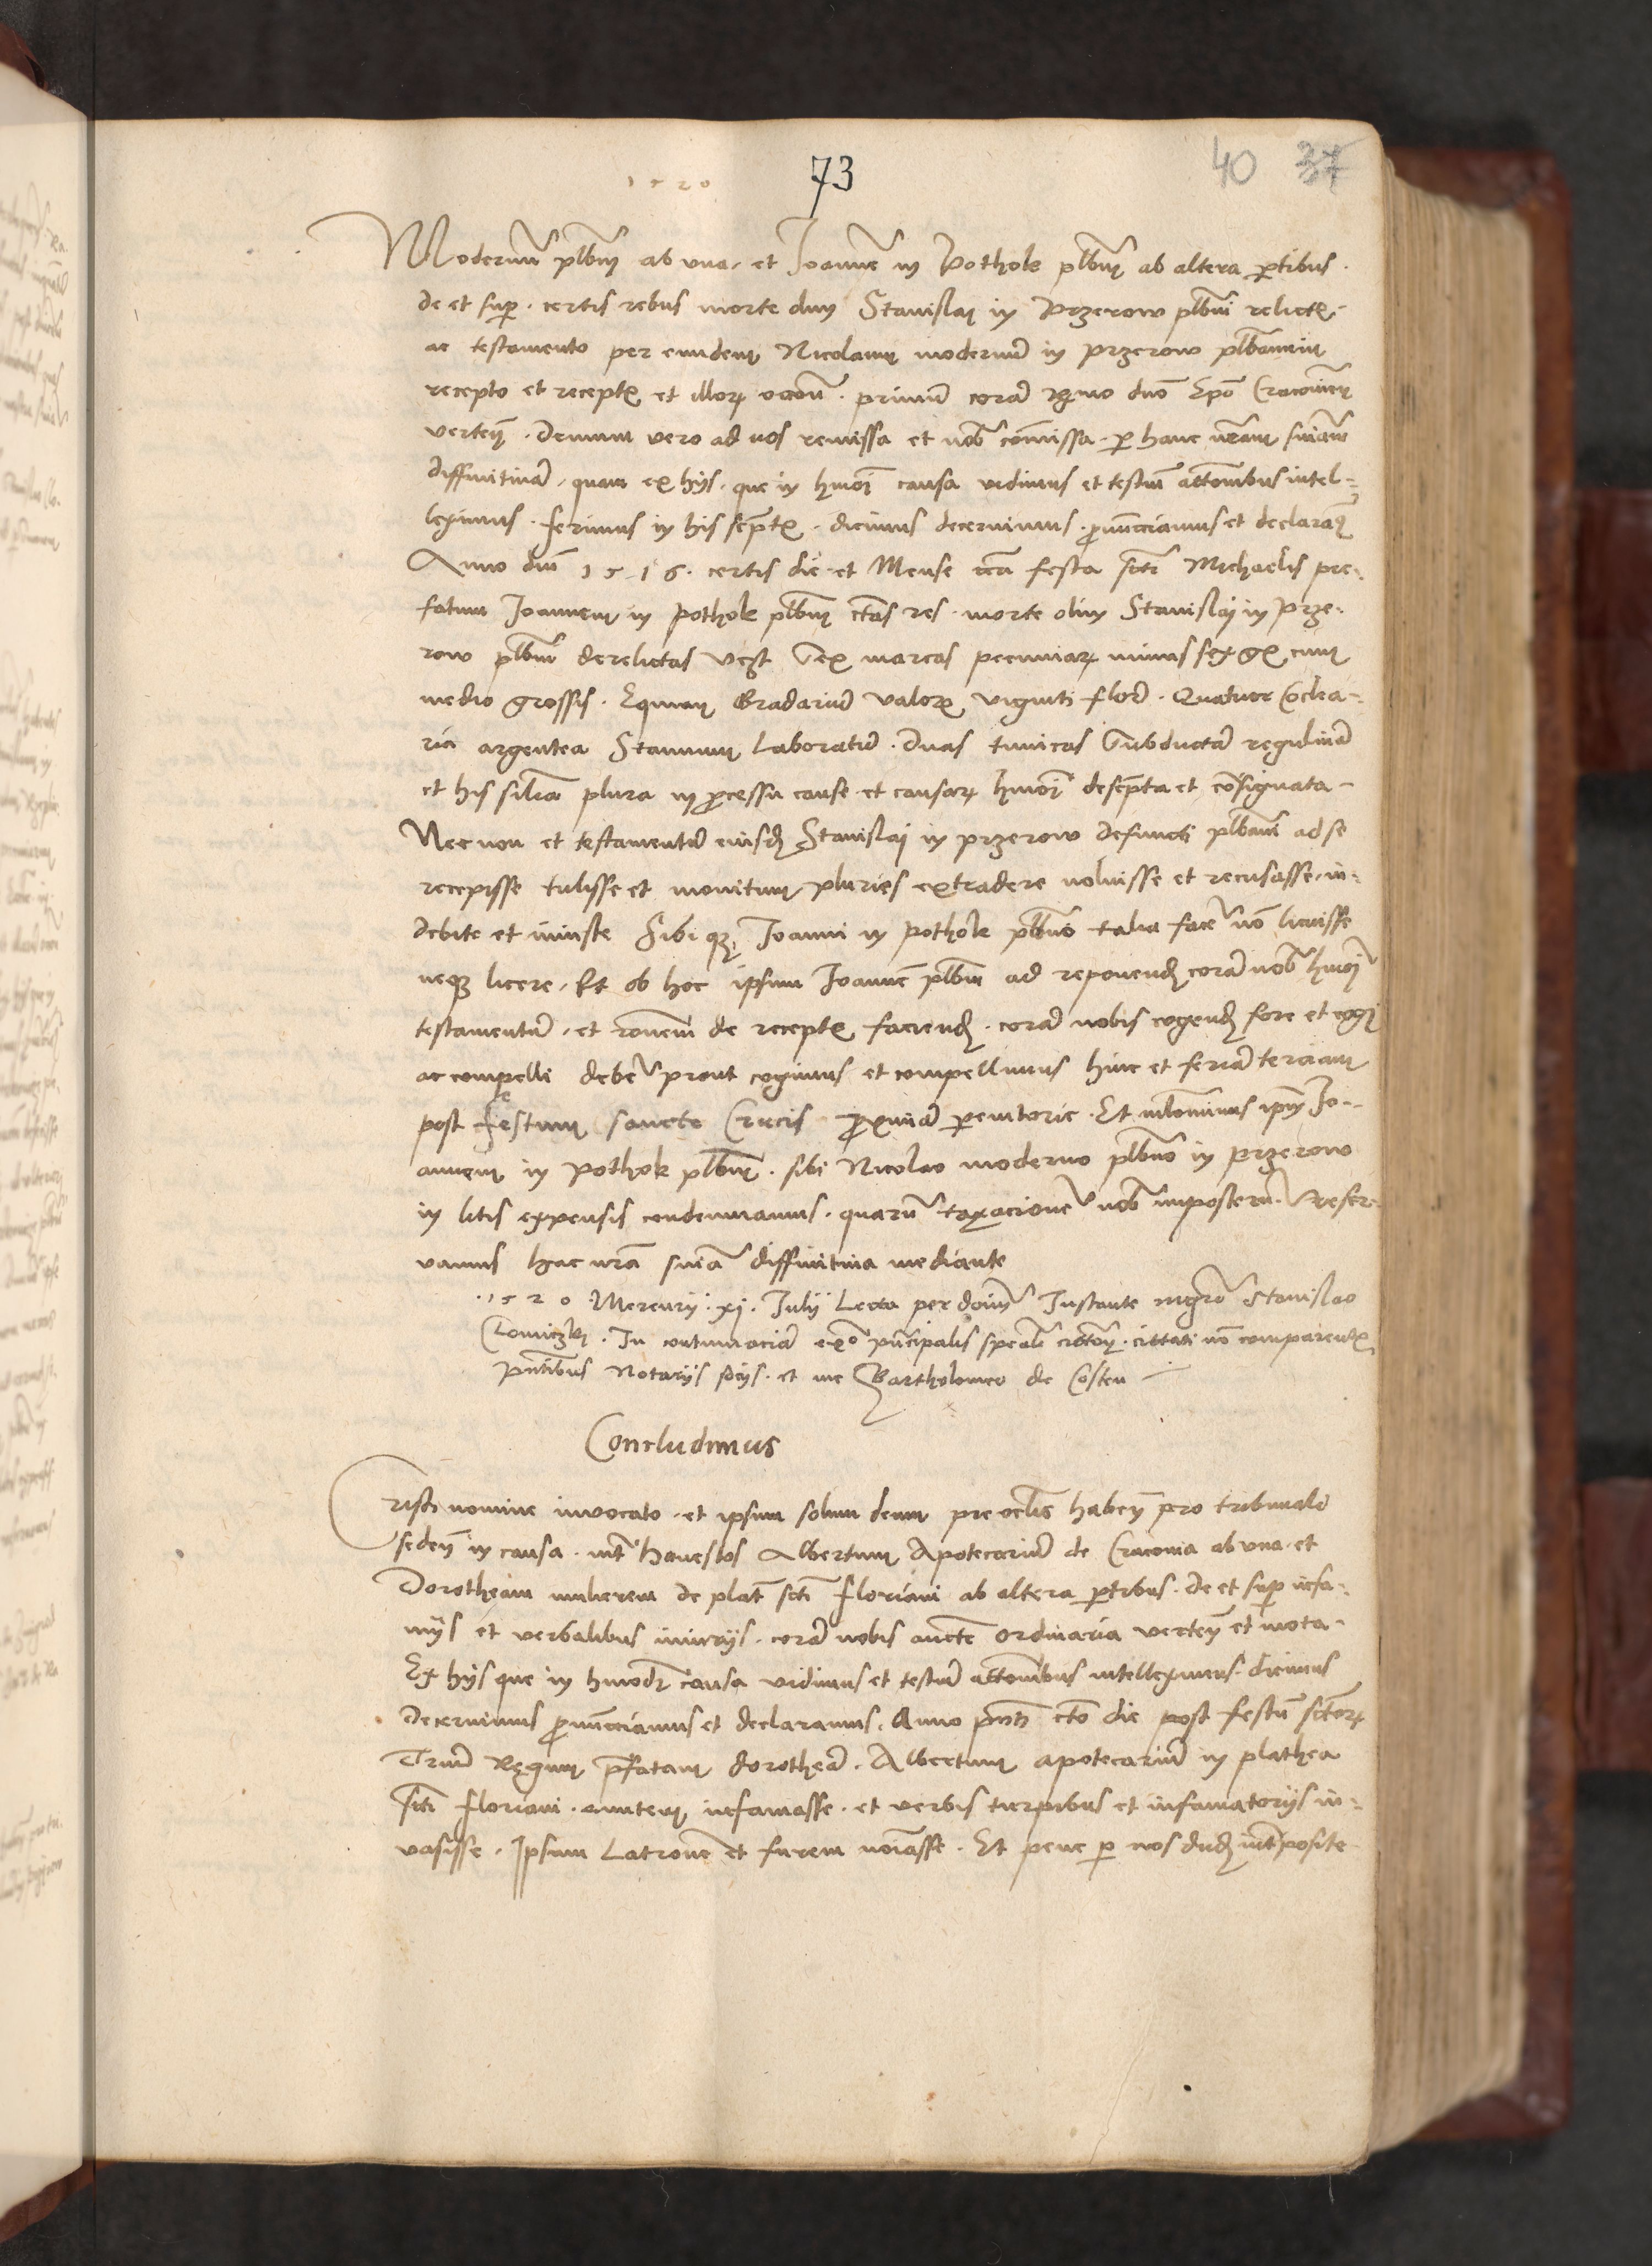 1520
73
40 37
Modernum plbnm ab vna, et Joannem in Pothok plbnm ab altera partibus.
de et super certis rebus morte dni Stanislai in Przerow plbni relictis
ac testamento per eundem Nicolaum modernum in przerow plbanum
recepto et receptis et illorum primum coram Rmo dno Epo Cracovien
verten. Demum vero ad nos remissa et nobis commissa. per hanc nram sniam
diffinitivam, quam ex hijs que in hmoi causa vidimus et testium attonibus intel=
leximus. ferimus in his scriptis. dicimus decernimus. pronunciamus et declaramus
Anno dni 1516. certis die et Mense circa festa scti Michaelis pre=
fatum Joannem in Pothok plbnm certas res. morte olim Stanislai in Prze=
row plbni derelictas videlicet Sex marcas pecuniarum minus sex gr cum
medio grossis. Equum Gradarium valoris viginti flor. Quatuor Coclea=
ria argentea Stannum laboratum. Duas tunicas Subductam
et his similia plura in processu cause et causarum hmoi descripta et consignata
Necnon et testamentum eiusdem Stanislai in przerow defuncti plbani ad se
recepisse tulisse et monitum pluries extradere noluisse et recusasse. in=
debite et iniuste Sibique Joanni in Pothok plbno talia facere non licuisse
neque licere. Et ob hoc ipsum Joannem plbnm ad reponendum coram nobis hmoi
testamentum. et rationem de receptis faciendum. coram nobis cogendum fore et cogi
ac compelli debere prout cogimus et compellimus hinc et feriam terciam
post festum sancte Crucis proximam peremtorie. Et ipsum Jo=
annem in Pothok plbnm. sibi Nicolao moderno plbno in przerow
in litis expensis condemnamus. quarum taxacionem nobis imposterum reser=
vamus hac nra snia diffinitiva mediante
1520 Mercurij. xj. Julij Lecta per dominum Instante mgro Stanislao
In contumaciam ex adverso principalis citati non comparentis
Pntibus Notarijs socijs. et me Bartholomeo de Costen
Concludimus
Cristi nomine invocato. et ipsum solum deum pre oclis haben pro tribunali
seden in causa. inter honestos Albertum Apotecarium de Cracovia ab vna. et
Dorotheam mulierem de platea scti Floriani ab altera partibus. de et super infa=
mijs et verbalibus iniurijs. coram nobis aucte ordinaria verten et mota
Ex hijs que in hmodi causa vidimus et testium attonibus intelleximus. dicimus
Decernimus pronunciamus et declaramus. Anno pnti certo die post festum sctorum
Trium Regum prefatam dorotheam. Albertum apotecarium in plathea
scti Floriani. infamasse. et verbis turpibus et infamatorijs in=
vasisse. Ipsum Latronem et furem noiasse. Et pene per nos interposite